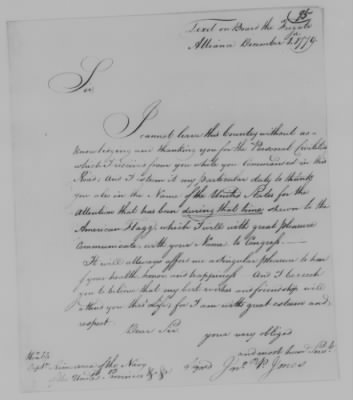 85
Texel on Board the Frigate
Alliance December 1st 1779
Sir
I cannot leave this Country without ac-
knowledging and thanking you for the Personal Civilities
which I receiv'd from you while you Commanded in this
Road. And I esteem it my particular duty to thank
you also in the Name of the United States for the
attention that has been during that time shewn to the
American Flagg, which I will with great pleasure
Communicate, with your Name to Congress—
It will allways afford me a singular pleasure to hear
of your health, honor and happiness. And I beseech
you to believe that my best wishes and friendship will
attend you thro' life, for I am with great esteem and
respect.
Dear Sir
your very obliged
and most hum Serv.t
signed Jno. P. Jones
Capt. of the Navy
of the United Provinces &c &c